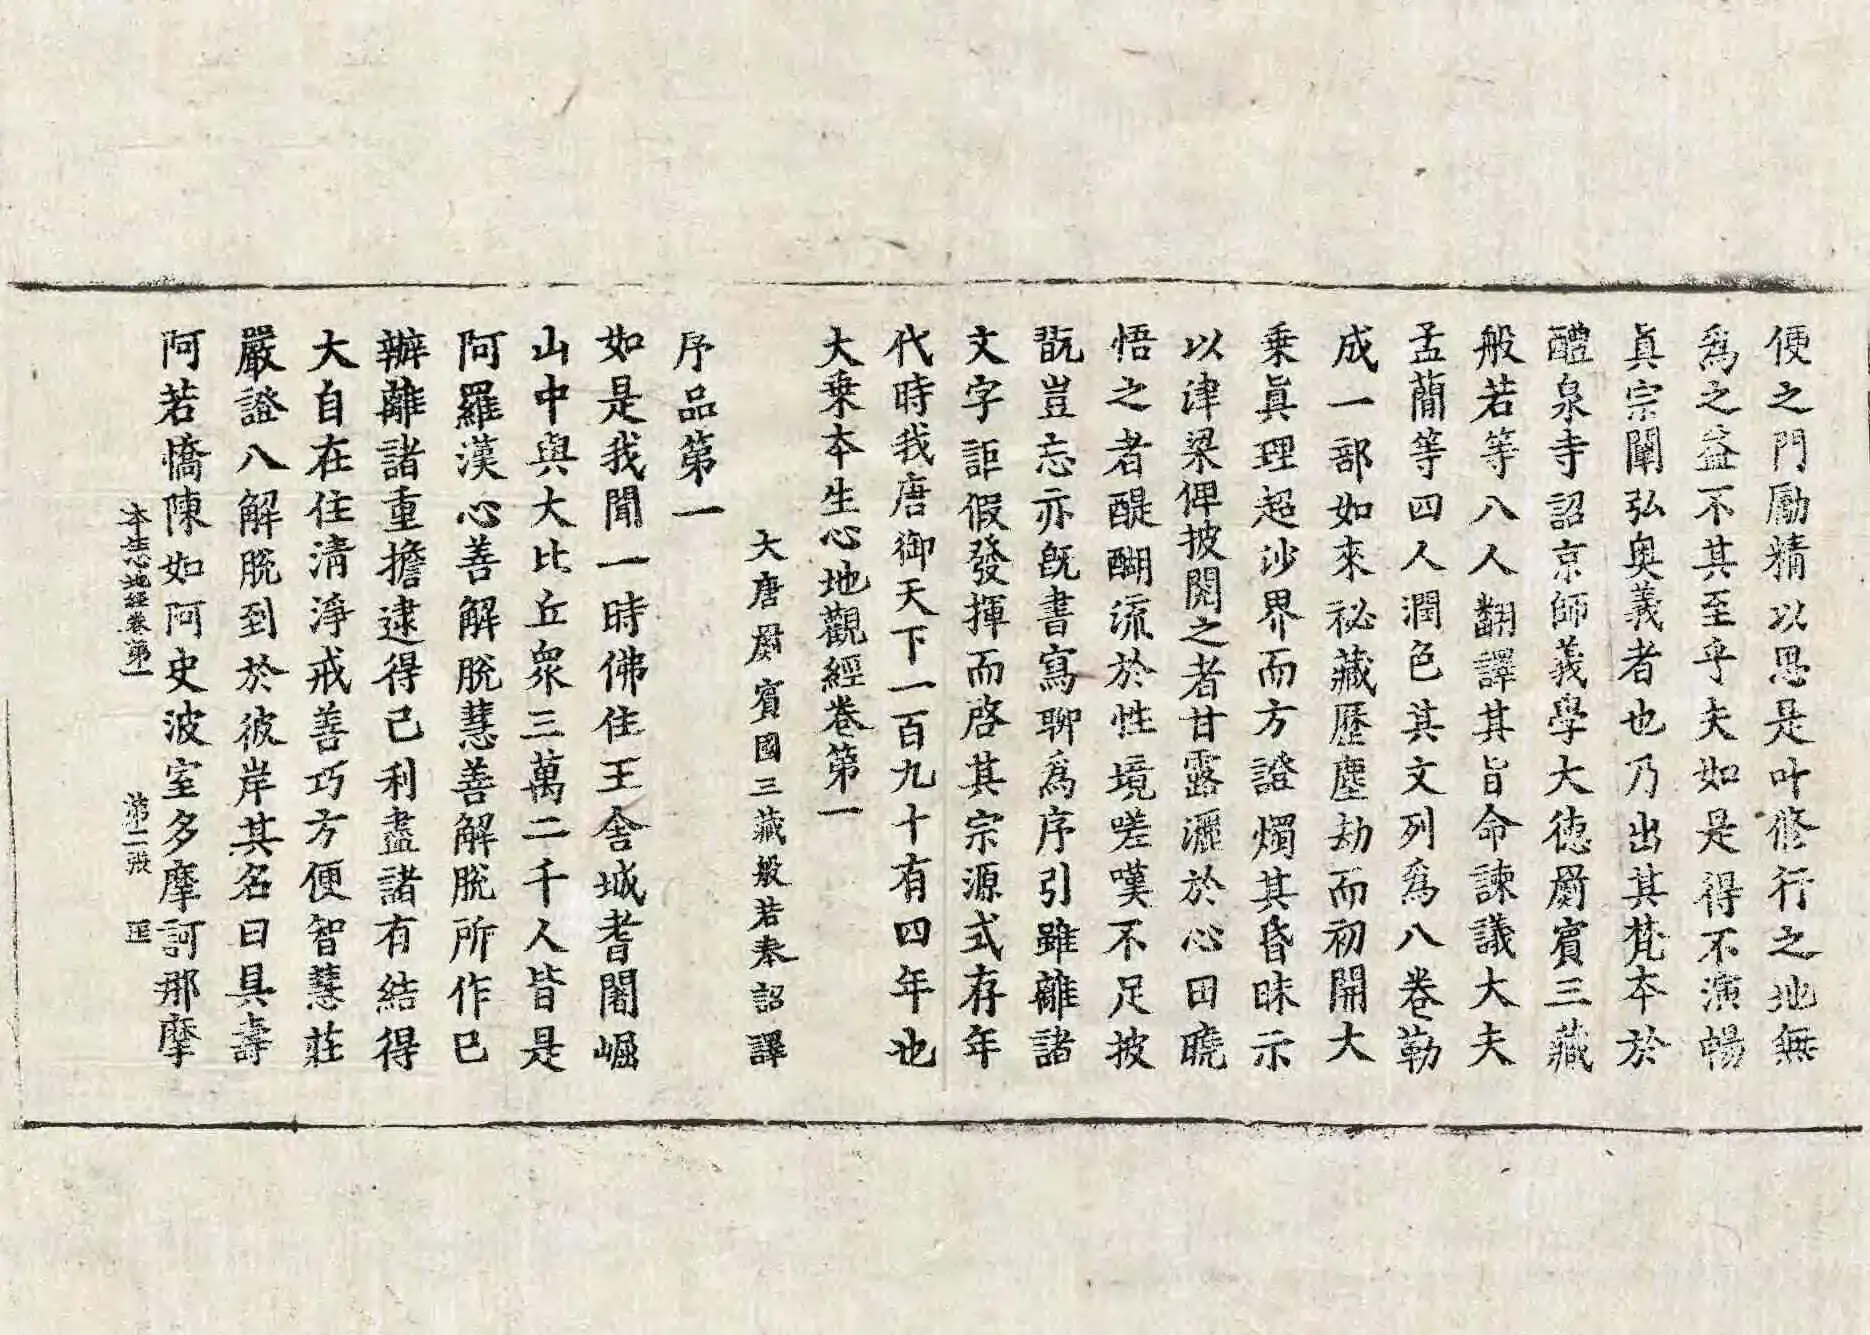 便之門勵精以思是叶修行之地無
爲之益不其至乎夫如是得不演暢
眞宗闡弘奥義者也乃出其梵本於
醴泉寺詔京師義學大徳罽賓三藏
般若等八人翻譯其旨命諫議大夫
孟蕳等四人潤色其文列爲八卷勒
成一部如來祕藏歷塵劫而初開大
乗眞理超沙界而方證燭其昏昧示
以津梁俾披閱之者甘露灑於心田曉
悟之者醍醐流於性境嗟嘆不足披
翫豈忘亦旣書寫聊爲序引雖離諸
文字詎假發揮而啓其宗源式存年
代時我唐御天下一百九十有四年也
大乗本生心地觀經卷第一
大唐罽賓國三藏般若奉詔譯
序品第一
如是我聞一時佛住王舍城耆闍崛
山中與大比丘衆三萬二千人皆是
阿羅漢心善解脫慧善解脫所作已
辦離諸重擔逮得己利盡諸有結得
大自在住清淨戒善巧方便智慧莊
嚴證八解脫到於彼岸其名曰具壽
阿若憍陳如阿史波室多摩訶那摩
本生心地經卷第一 第二張 匡